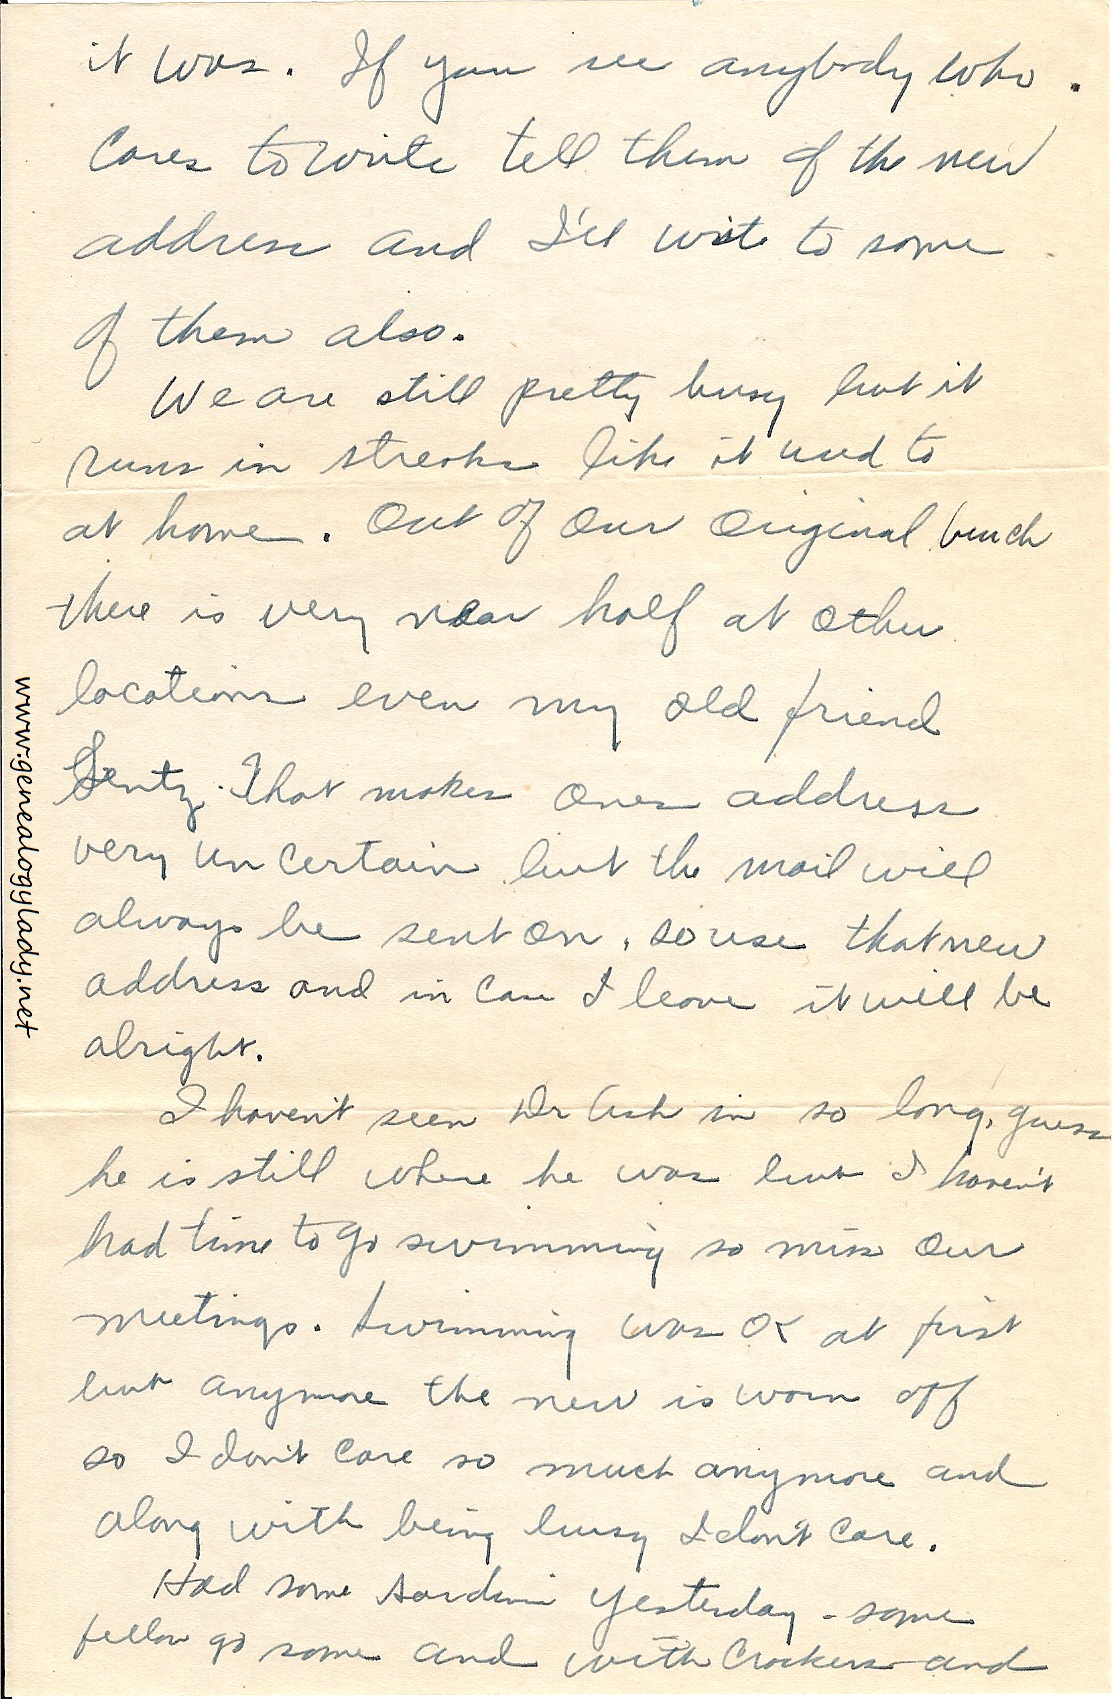 it was. If you see anybody who
cares to write tell them of the new
address and I'll write to some
of them also.
We are still pretty busy but it
runs in streaks like it used to
at home. Out of our original bunch
there is very near half at other
locations even my old friend
Gentz. That makes ones address
very uncertain but the mail will
always be sent on, so use that new
address and in case I leave it will be
alright.
I haven't seen Dr Ash in so long, guess
he is still where he was but I haven't
had time to go swimming so miss our
meetings. Swimming was OK at first
but anymore the new is worn off
so I don't care so much anymore and
along with being busy I don't care.
Had some sardines yesterday - some
fellow got some and with crackers and
www.genealogylady.net